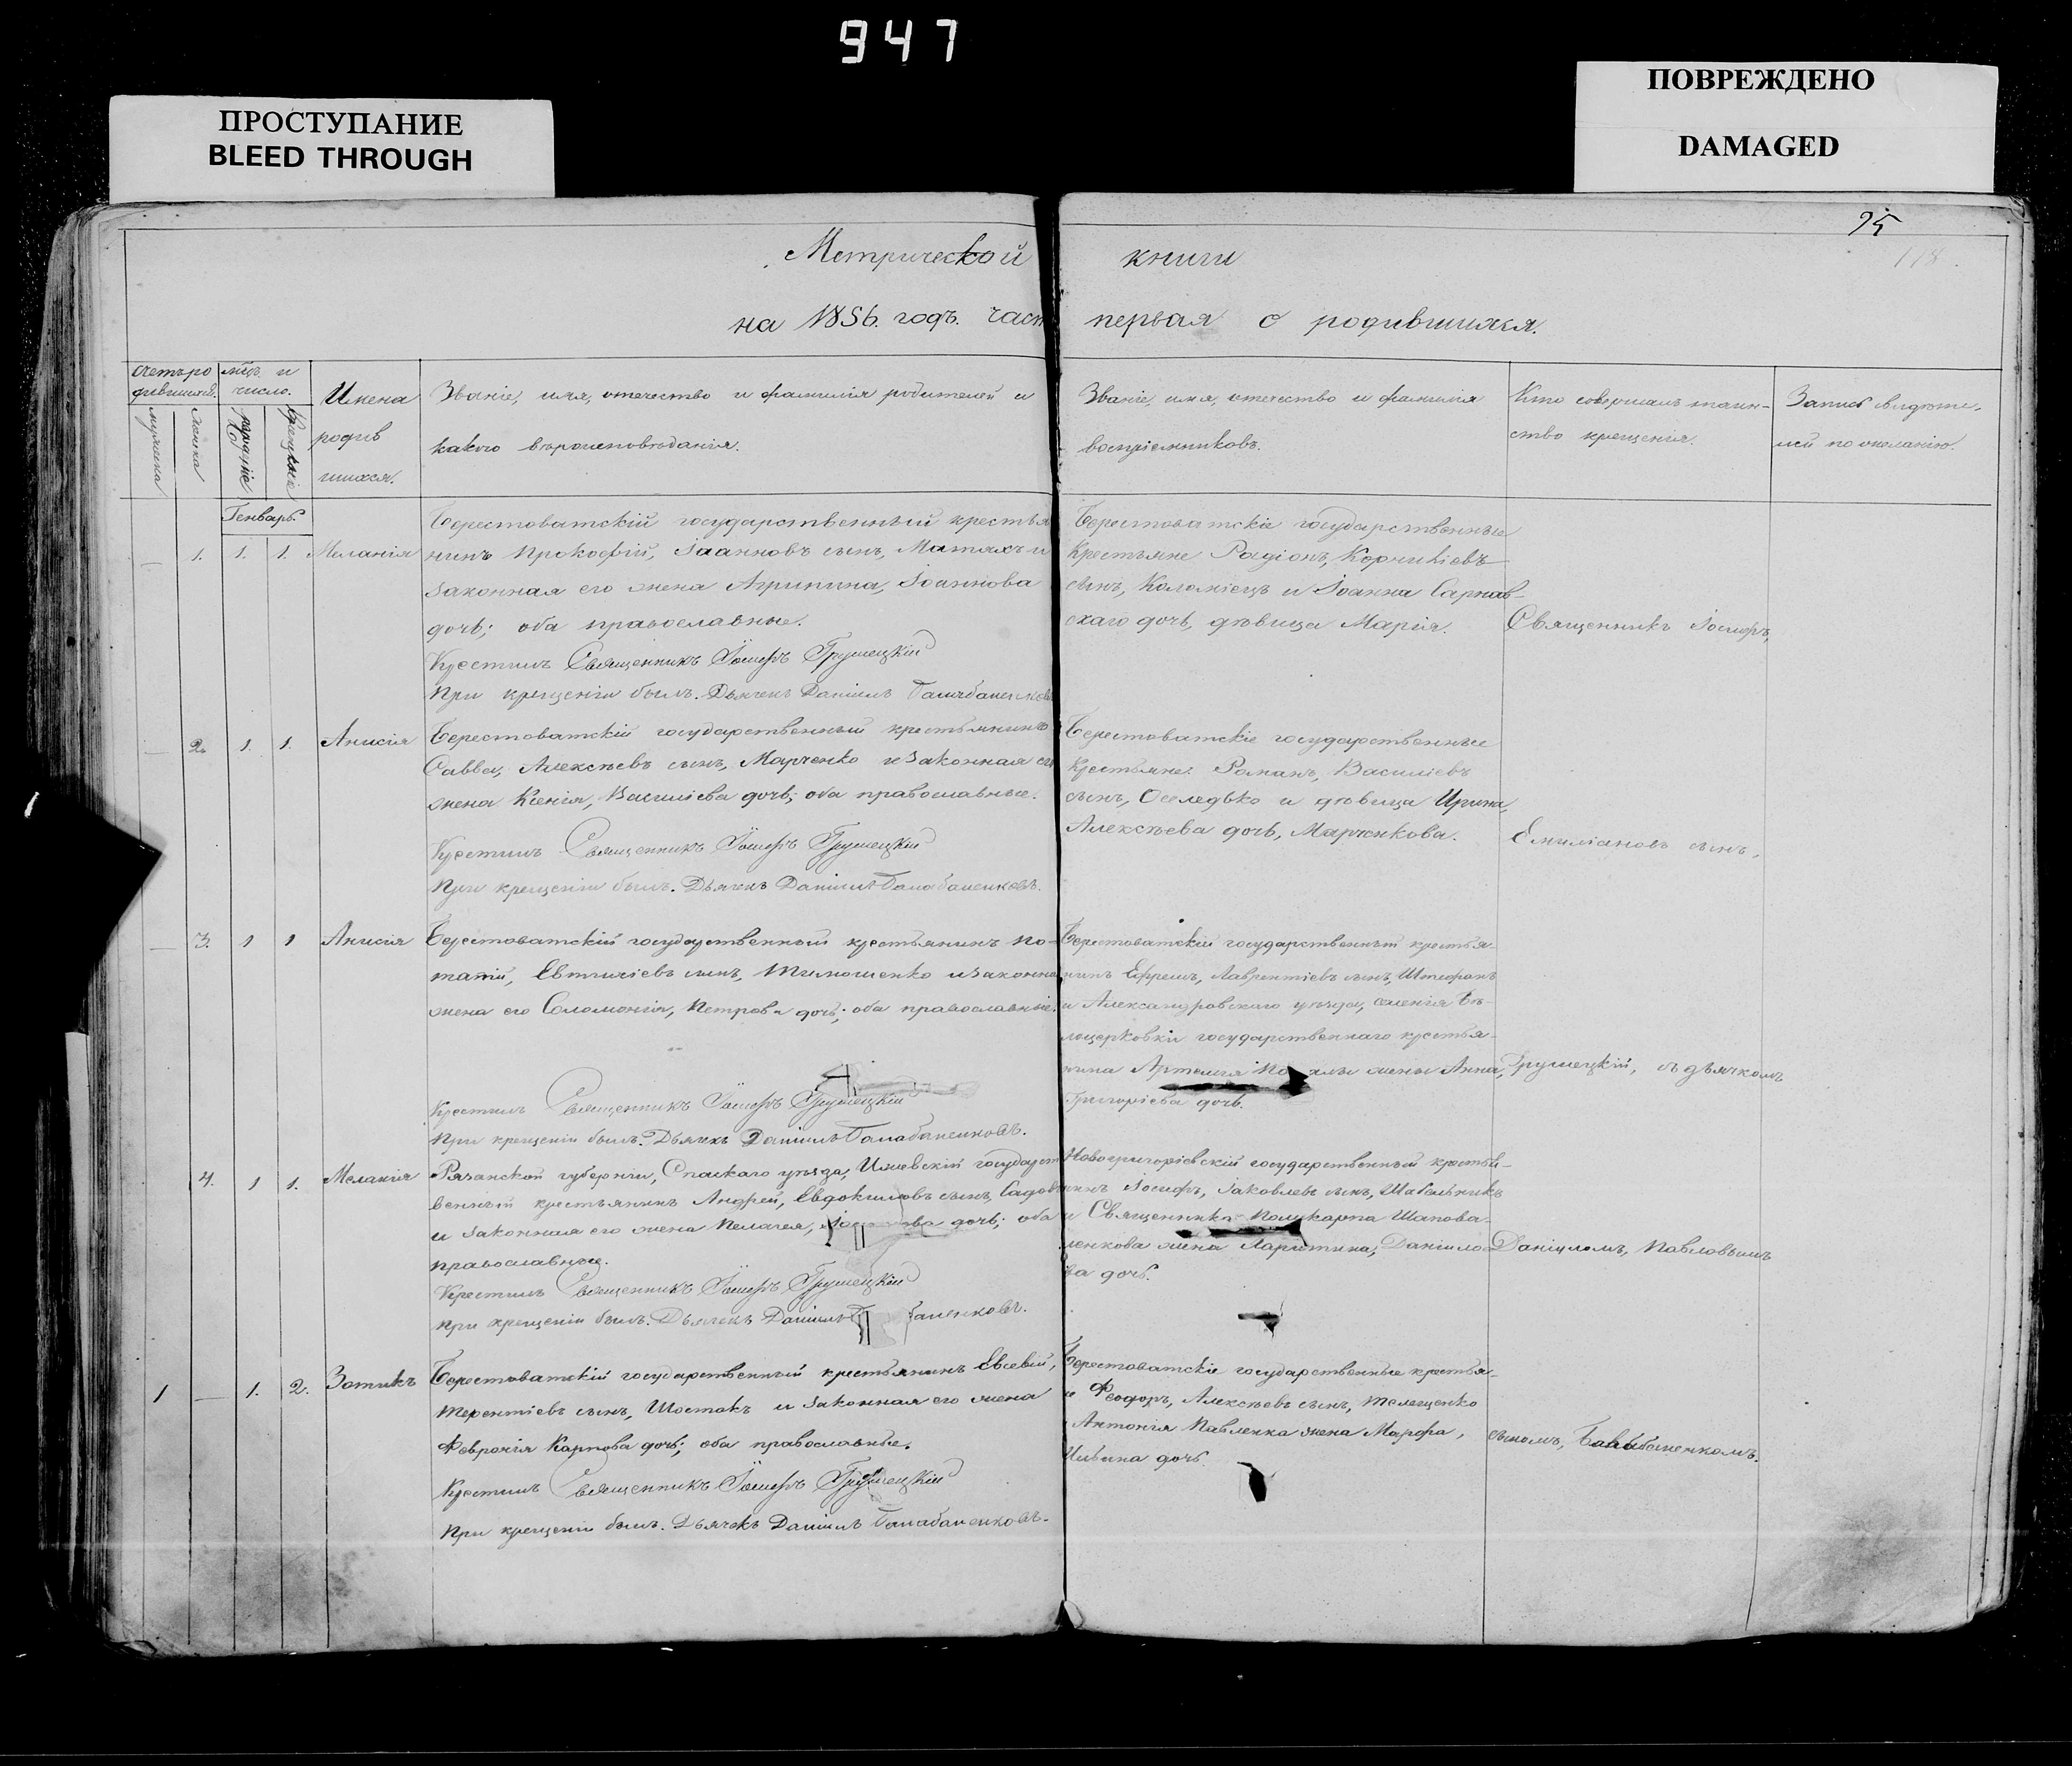 947
ПРОСТУПАНИЕ
BLEED THROUGH
ПОВРЕЖДЕНО
DAMAGED
95
118.
Метрической книги
на 1856. годъ. част первая о родившихся.
Счетъ ро
дившихся.
мужеска
женска
мѣц. и
число.
рожденіе
крещеніе
Имена
родив
шихся.
Званіе, имя, отечество и фамилія родителей и
какого вѣроисповѣданія.
Званіе, имя, отечество и фамилія
воспріемниковъ.
Кто совершалъ таин-
ство крещенія.
Запись свидѣте-
лей по желанію.
Генварь.
1. 1. 1. Меланія
Берестоватскій государственный крестья
нинъ Прокофій, Іаанновъ сынъ, Матяхъ и
законная его жена Агрипина, Іоаннова
дочь; оба православные.
Крестилъ Священникъ Іосифъ Грушецкій
При крещеніи былъ. Дьячекъ Даніилъ Балабаненковъ
Берестоватскіе государственные
крестьяне Радіонъ, Корниліевъ
сынъ, Коломіецъ и Іоанна Сарнав-
скаго дочь, дѣвица Марія.
Священникъ Іосифъ,
2. 1. 1. Анисія
Берестоватскій государственный крестьянинъ
Савва, Алексѣевъ сынъ, Марченко и законная его
жена Ксенія, Василіева дочь; оба православные.
Крестилъ Священникъ Іосифъ Грушецкій
При крещеніи былъ. Дьячекъ Даніилъ Балабаненковъ.
Берестоватскіе государственные
крестьяне: Романъ, Василіевъ
сынъ, Оселедько и дѣвица Ирина,
Алексѣева дочь, Марченкова.
Емиліановъ сынъ,
3. 1 1 Анисія
Берестоватскій государственный крестьянинъ По-
тапій, Евтихіевъ сынъ, Тимошенко и законна
жена его Соломонія, Петрова дочь; оба православные.
Крестилъ Священникъ Іосифъ Грушецкій
При крещеніи былъ. Дьячекъ Даніилъ Балабаненковъ.
Берестоватскій государственный крестья-
нинъ Ефремъ, Лаврентіевъ сынъ, Штефанъ
и Александровскаго уѣзда, селенія Бѣ-
лоцерковки государственнаго крестья-
нина Артемія жены Анна,
Григоріева дочь.
Грушецкій, съ дьячкомъ
4. 1 1. Меланія
Рязанской губерніи, Спаскаго уѣзда, Ижевскій государст
венный крестьянинъ Андрей, Евдокимовъ сынъ, Садов
и законная его жена Пелагея, дочь; оба
православные.
Крестилъ Священникъ Іосифъ Грушецкій
при крещеніи былъ. Дьячекъ Даніилъ Б баненковъ.
Новогригоріевскій государственный крестья-
нинъ Іосифъ, Іаковлевъ сынъ, Шабельникъ
и Священника Поликарпа Шапова-
ленкова жена Харитина, Даніило
ва дочь.
Даніиломъ, Павловымъ
1 — 1. 2. Зотикъ
Берестоватскій государственный крестьянинъ Евсевій,
Терентіевъ сынъ, Шостакъ и законная его жена
Февронія Карпова дочь; оба православные.
Крестилъ Священникъ Іосифъ Грушецкій
При крещеніи былъ. Дьячекъ Даніилъ Балабаненковъ.
Берестоватскіе государственные крестья-
е Феодоръ, Алексѣевъ сынъ, Телющенко
Антонія Павленка жена Марфа,
Ильина дочь.
сыномъ, Балабаненкомъ.